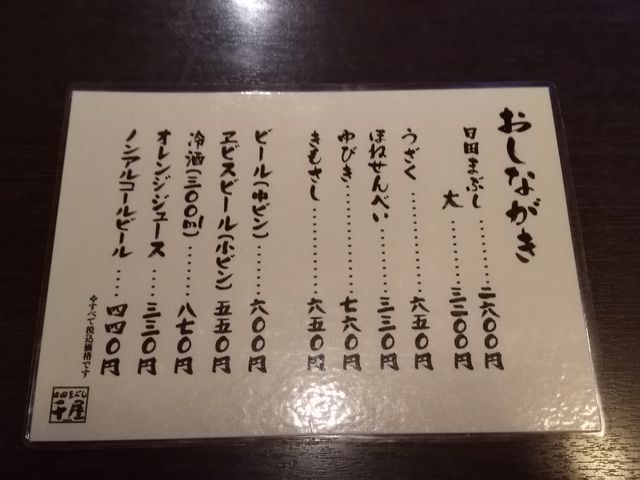 おしながき
日田まぶし‥‥‥‥二六〇〇円
大‥‥‥‥三二〇〇円
うざく‥‥‥‥六五〇円
ほねせんべい‥‥‥‥三三〇円
ゆびき‥‥‥‥七六〇円
きもさし‥‥‥‥六五〇円
ビール(中ビン)‥‥‥六〇〇円
ヱビスビール(小ビン)五五〇円
冷酒(三〇〇ml)‥‥‥八七〇円
オレンジジュース‥‥三三〇円
ノンアルコールビール‥‥四四〇円
※すべて税込価格です
日田まぶし
千屋